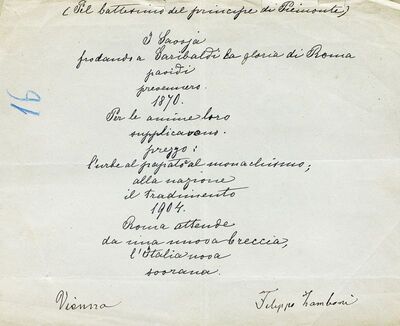 (Pel battesimo del principe di Piemonte)
I Savoja
frodando a Garibaldi la gloria di Roma
pavidi
presenziaro.
1870.
Per le anime loro
supplicavano.
prezzo:
l'urbe al papato al monachismo;
alla nazione
il tradimento
1904.
Roma attende
da una nuova breccia,
l'Italia nova
sovrana.
Vienna
Filippo Zamboni
16